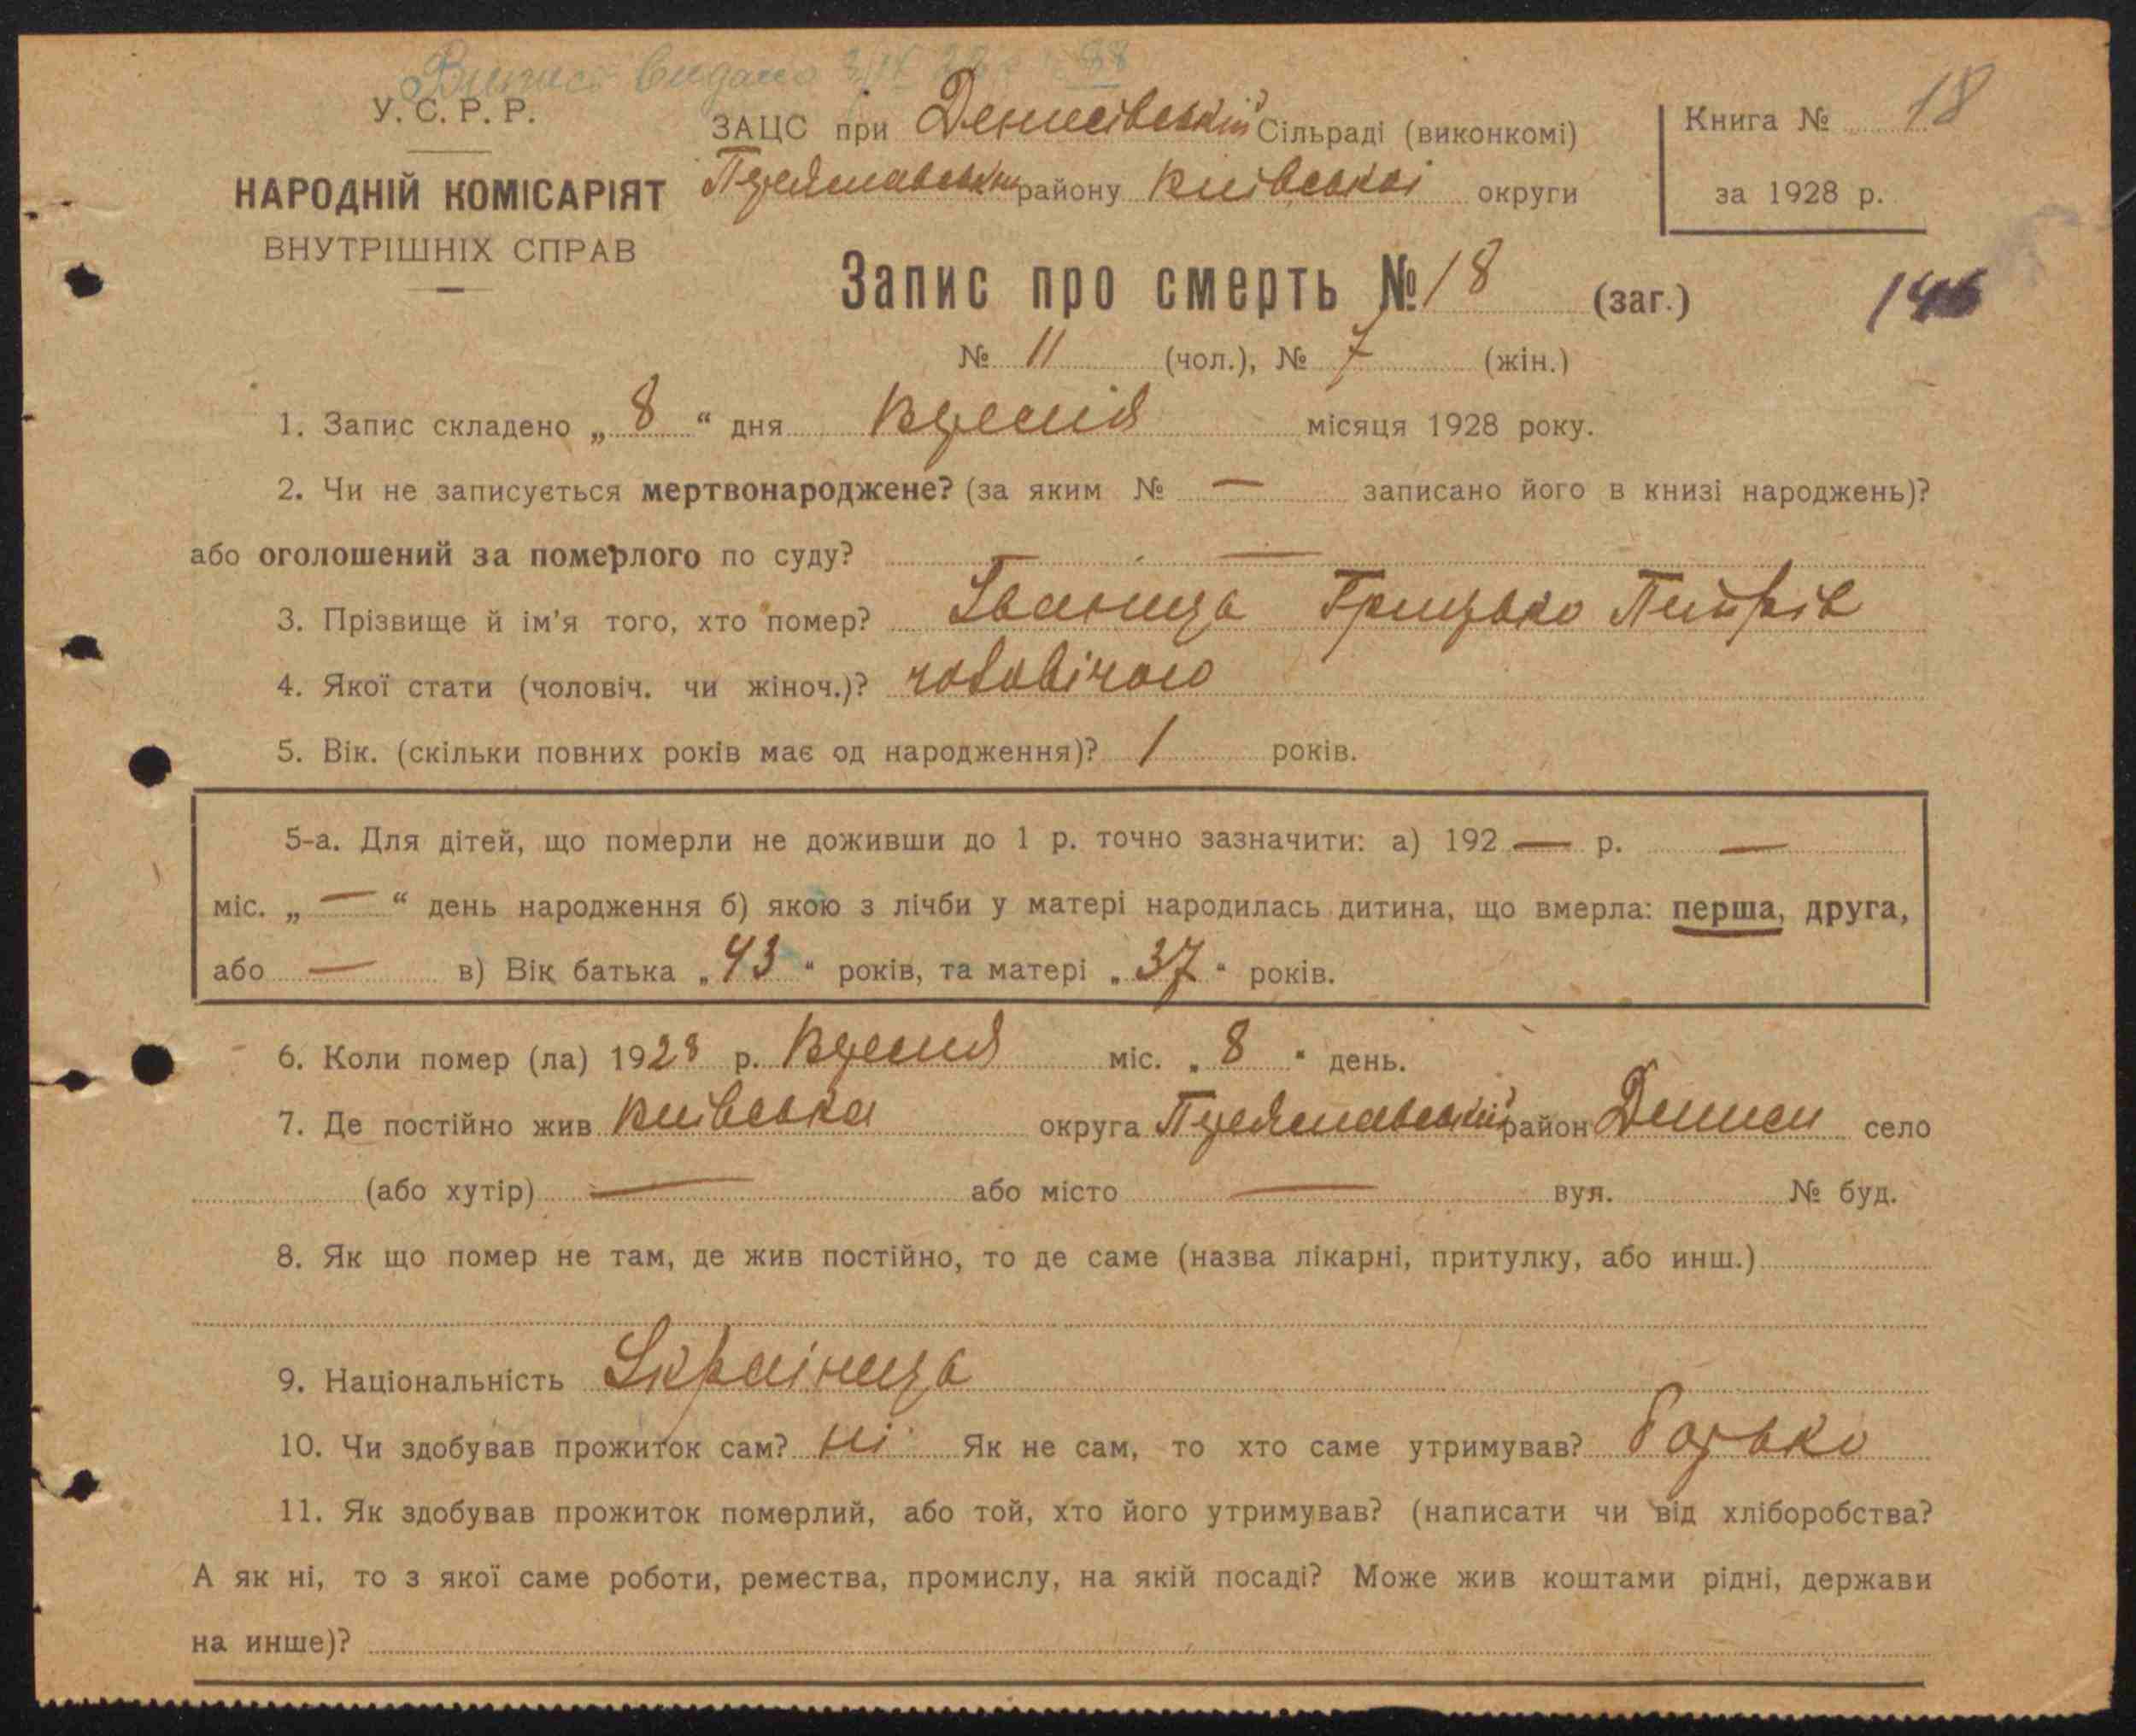 Випис видано
У. С. Р. Р.
НАРОДНІЙ КОМІСАРІЯТ
ВНУТРІШНІХ СПРАВ
ЗАЦС при Денисівській Сільраді (виконкомі)
району Київської округи
Книга № 18
за 1928 р.
Запис про смерть № 18 (заг.)
146
№ 11 (чол.), № 7 (жін.)
1. Запис складено „ 8 “ дня місяця 1928 року.
2. Чи не записується мертвонароджене? (за яким № — записано його в книзі народжень)?
або оголошений за померлого по суду? —
3. Прізвище й ім'я того, хто помер? Іваниця Грицько Петрів
4. Якої стати (чоловіч. чи жіноч.)? чоловічої
5. Вік. (скільки повних років має од народження)? 1 років.
5-а. Для дітей, що померли не доживши до 1 р. точно зазначити: а) 192 — р. —
міс. „ — “ день народження б) якою з лічби у матері народилась дитина, що вмерла: перша, друга,
або — в) Вік батька „ 43 “ років, та матері „ 37 “ років.
6. Коли помер (ла) 1928 р. міс. „ 8 “ день.
7. Де постійно жив Київська округа район Дениси село
(або хутір) — або місто — вул. № буд.
8. Як що помер не там, де жив постійно, то де саме (назва лікарні, притулку, або инш.)
9. Національність Українець
10. Чи здобував прожиток сам? ні Як не сам, то хто саме утримував? батько
11. Як здобував прожиток померлий, або той, хто його утримував? (написати чи від хліборобства?
А як ні, то з якої саме роботи, ремества, промислу, на якій посаді? Може жив коштами рідні, держави
на инше)?